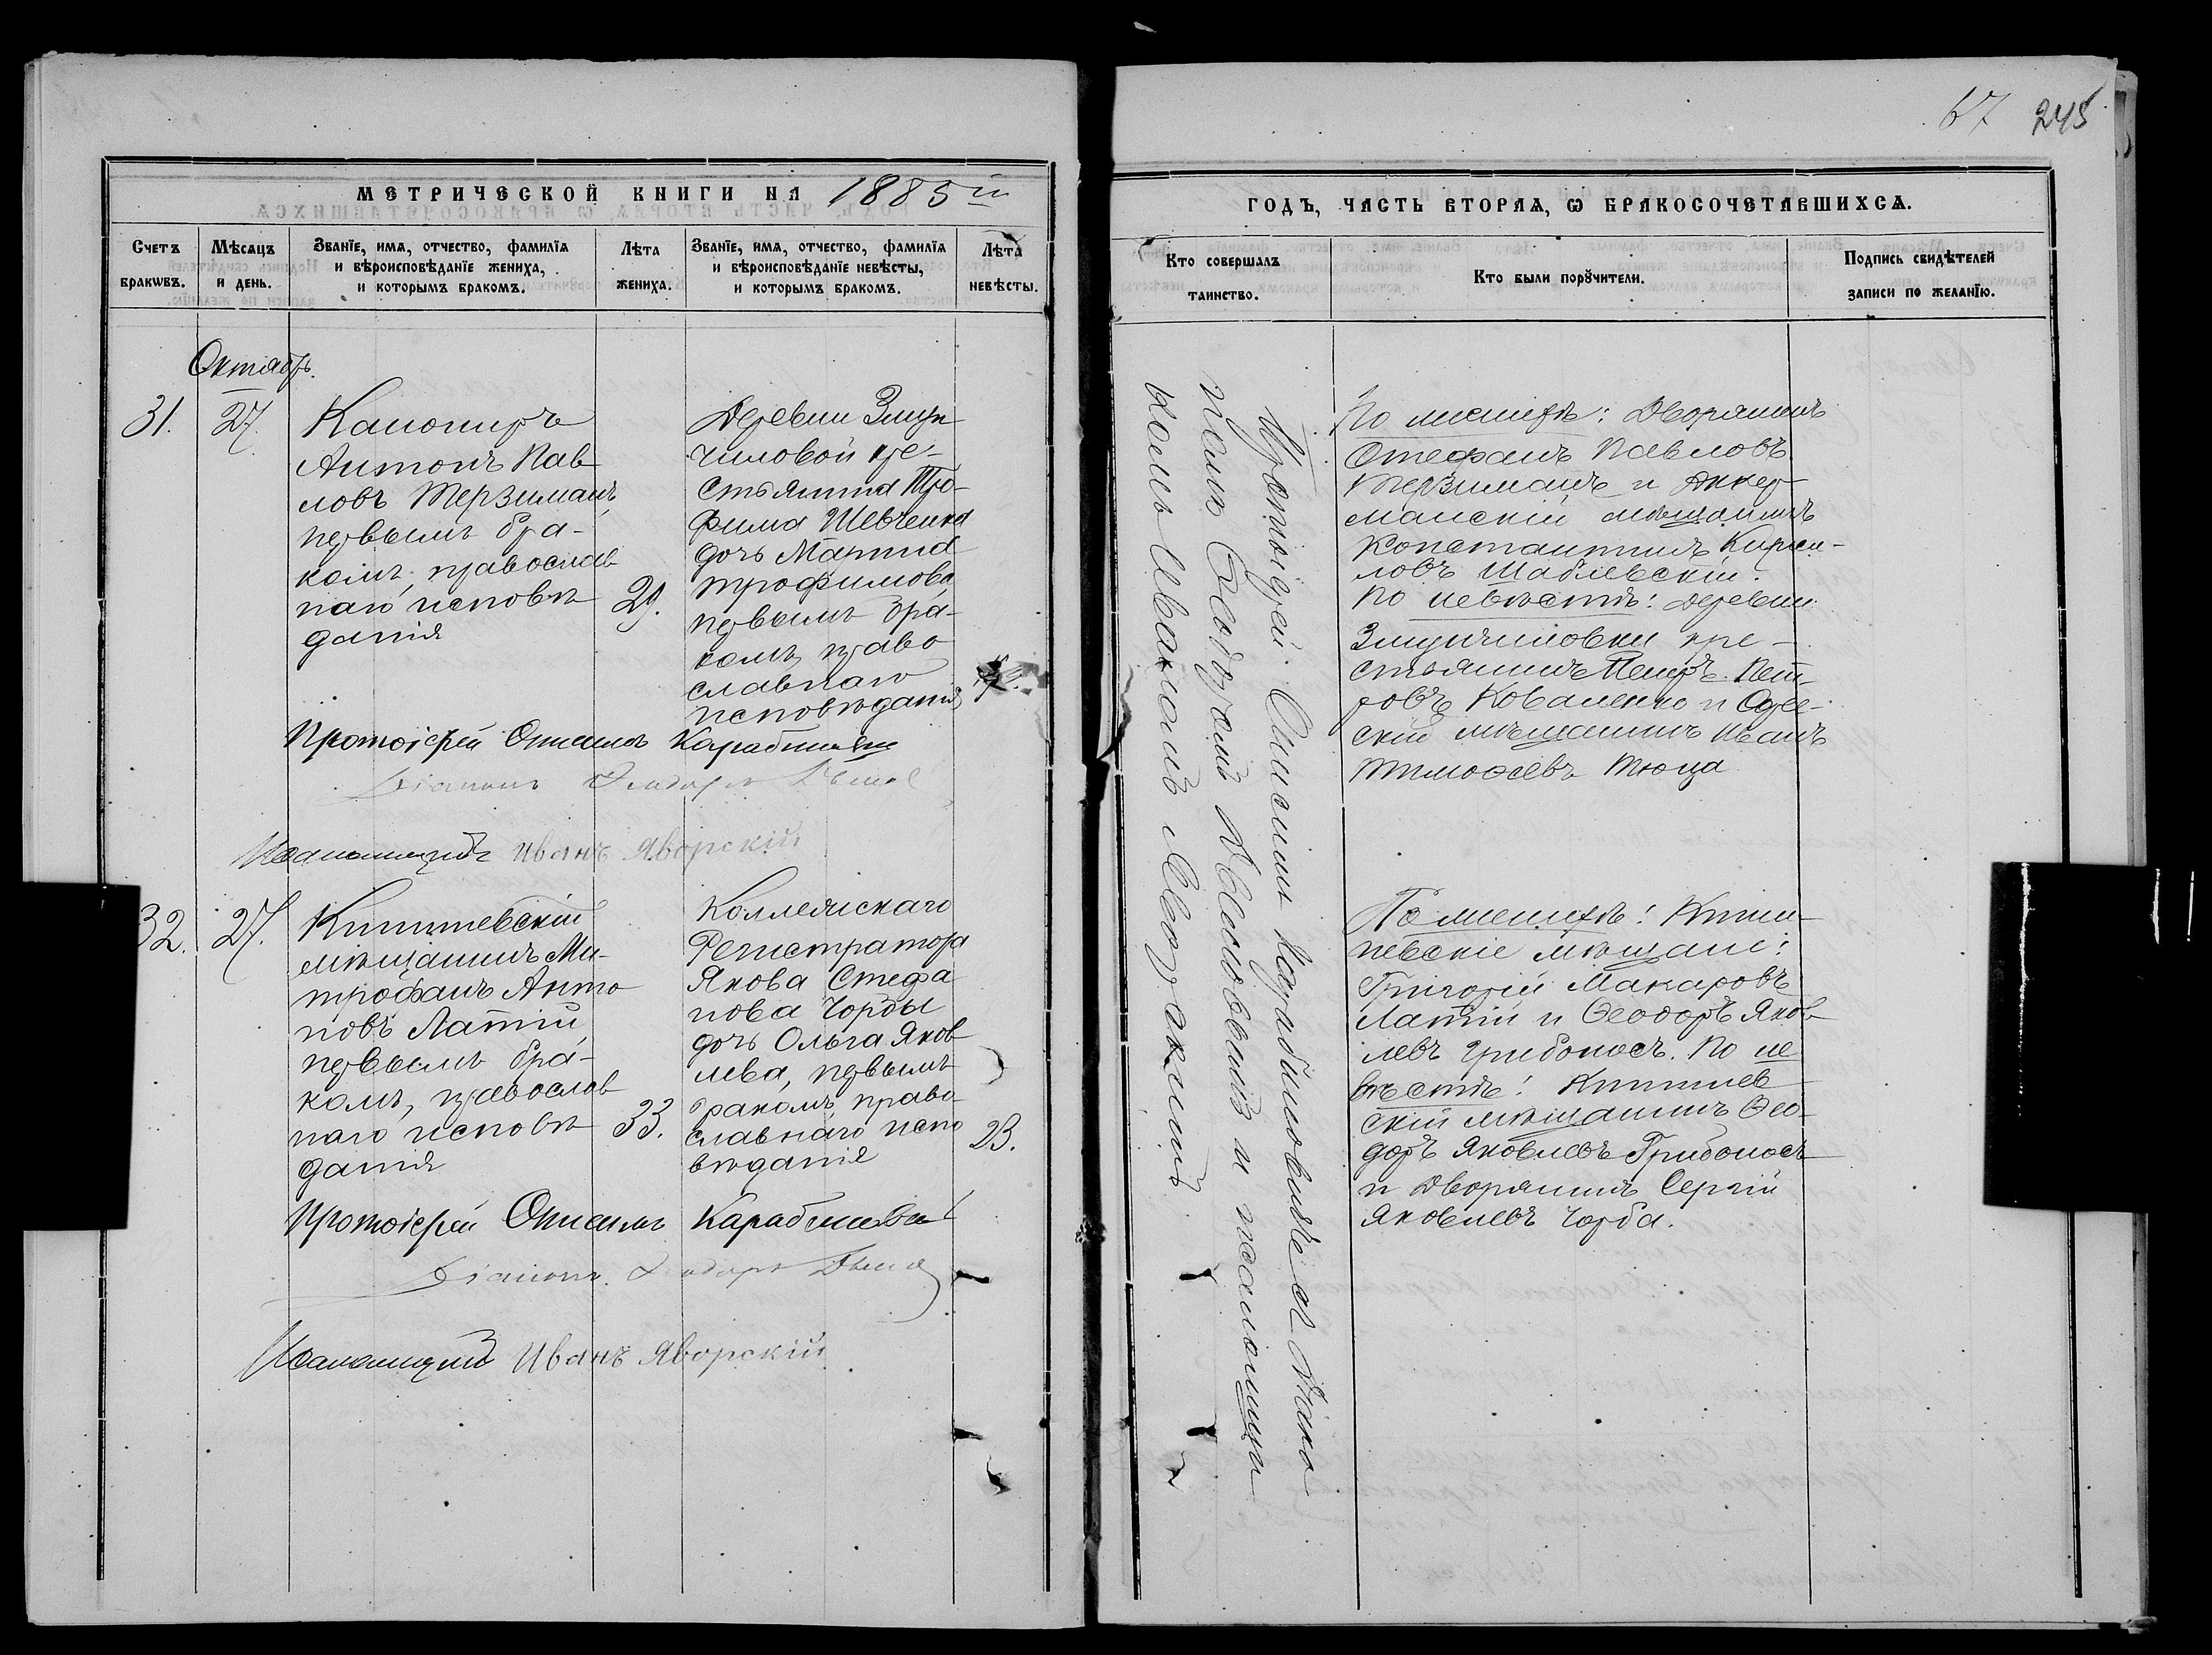 67 245
МЕТРИЧЕСКОЙ КНИГИ НА 1885 й
ГОДЪ, ЧАСТЬ ВТОРАЯ, Ѡ БРАКОСОЧЕТАВШИХСЯ.
Счетъ браковъ.
Мѣсяцъ и день.
Званіе, имя, отчество, фамилія
и вѣроисповѣданіе жениха,
и которымъ бракомъ.
Лѣта жениха.
Званіе, имя, отчество, фамилія
и вѣроисповѣданіе невѣсты,
и которымъ бракомъ.
Лѣта невѣсты.
Кто совершалъ таинство.
Кто были поручители.
Подпись свидѣтелей
записи по желанію.
Октябрь.
31.
27.
Канониръ
Антонъ Пав
ловъ Терзиманъ,
первымъ бра-
комъ, православ
наго исповѣ
данія
29.
Деревни
чиловой кре-
стьянина Тро-
фима Шевченка
дочь
Трофимова
первымъ бра-
комъ, право
славнаго
исповѣданія
Протоіерей Онисимъ
Діаконъ Ѳеодоръ
Псаломщикъ Иванъ Яворскій
По женихѣ: Дворянинъ
Стефанъ Павловъ
Терзиманъ и Аккер-
манскій мѣщанинъ
Константинъ Кирил-
ловъ Шаблевскій.
По невѣстѣ: деревни
кре-
стьянинъ Петръ Пет-
ровъ Коваленко и Одес-
скій мѣщанинъ Иванъ
Тимоѳеевъ Тюца
32.
27.
Кишиневскій
мѣщанинъ Ми-
трофанъ Анто
новъ Латій
первымъ бра-
комъ, православ
наго исповѣ
данія
33.
Коллежскаго
Регистратора
Якова Стефа
нова Чорбы
дочь Ольга Яков
лева, первымъ
бракомъ, право
славнаго испо
вѣданія
23.
Протоіерей Онисимъ
Діаконъ Ѳеодоръ
Псаломщикъ Иванъ Яворскій
По женихѣ: Киши-
невскіе мѣщане:
Григорій Макаровъ
Латій и Ѳеодоръ Яков
левъ Грибоносъ. По не
вѣстѣ: Кишинев
скій мѣщанинъ Ѳео-
доръ Яковлевъ Грибоносъ
и Дворянинъ Сергій
Яковлевъ Чорба.
Протоіерей Онисимъ съ Діако
номъ Ѳеодоромъ и псаломщи
комъ Иваномъ Яворскимъ